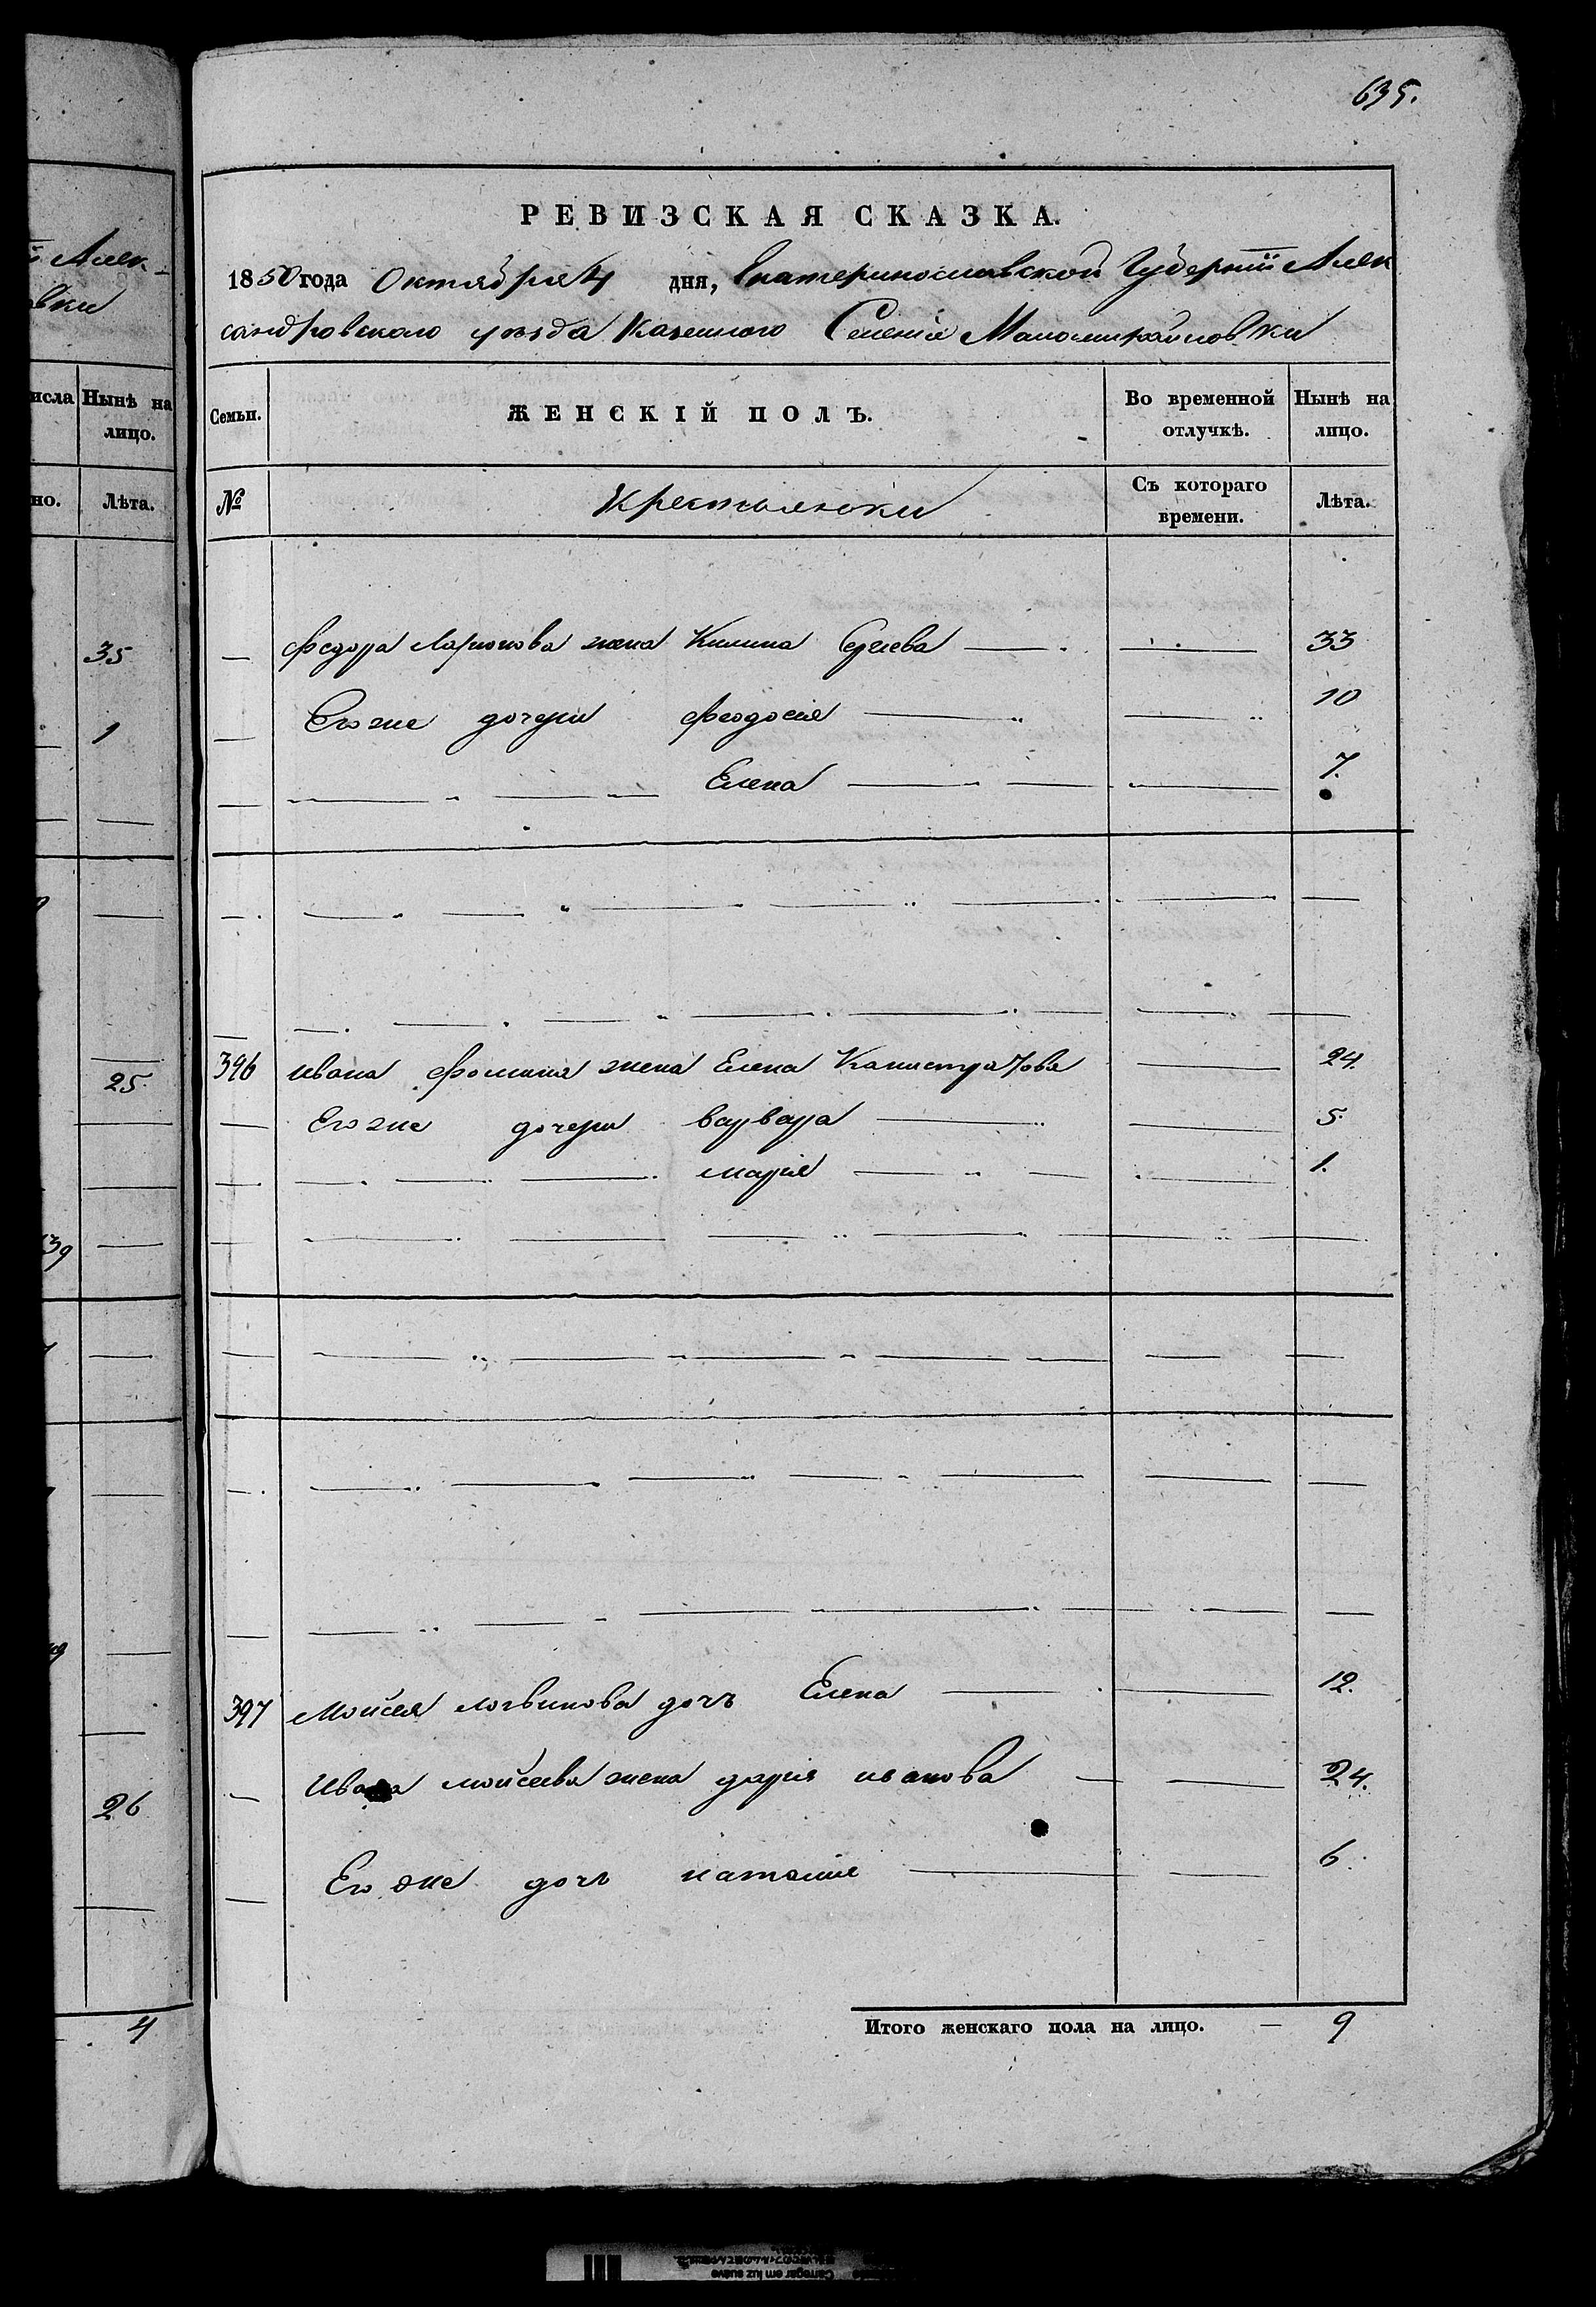 635.
РЕВИЗСКАЯ СКАЗКА.
1850 года Октября 4 дня, Екатеринославской Губернiи Алек
сандровского уезда Казенного Селенiя Маломихайловки
Семьи. ЖЕНСКІЙ ПОЛЪ. Во временной отлучкѣ. Нынѣ на лицо.
№ Крестьянки Съ котораго времени. Лѣта.
Федора Ларионова жена Килина Сергиева 33
Его же дочери Феодосия 10
Елена 7.
396 Ивана Фомина жена Елена Калистратова 24.
Его же дочери Варвара 5.
Мария 1.
397 Моисея Логвинова дочь Елена 12.
Ивана Моисеева жена Дария Иванова 24.
Его же дочь Наталия 6.
Итого женскаго пола на лицо. — 9
й Алек-
вки
исла Нынѣ на лицо.
но. Лѣта.
35
1
25.
39
26
4